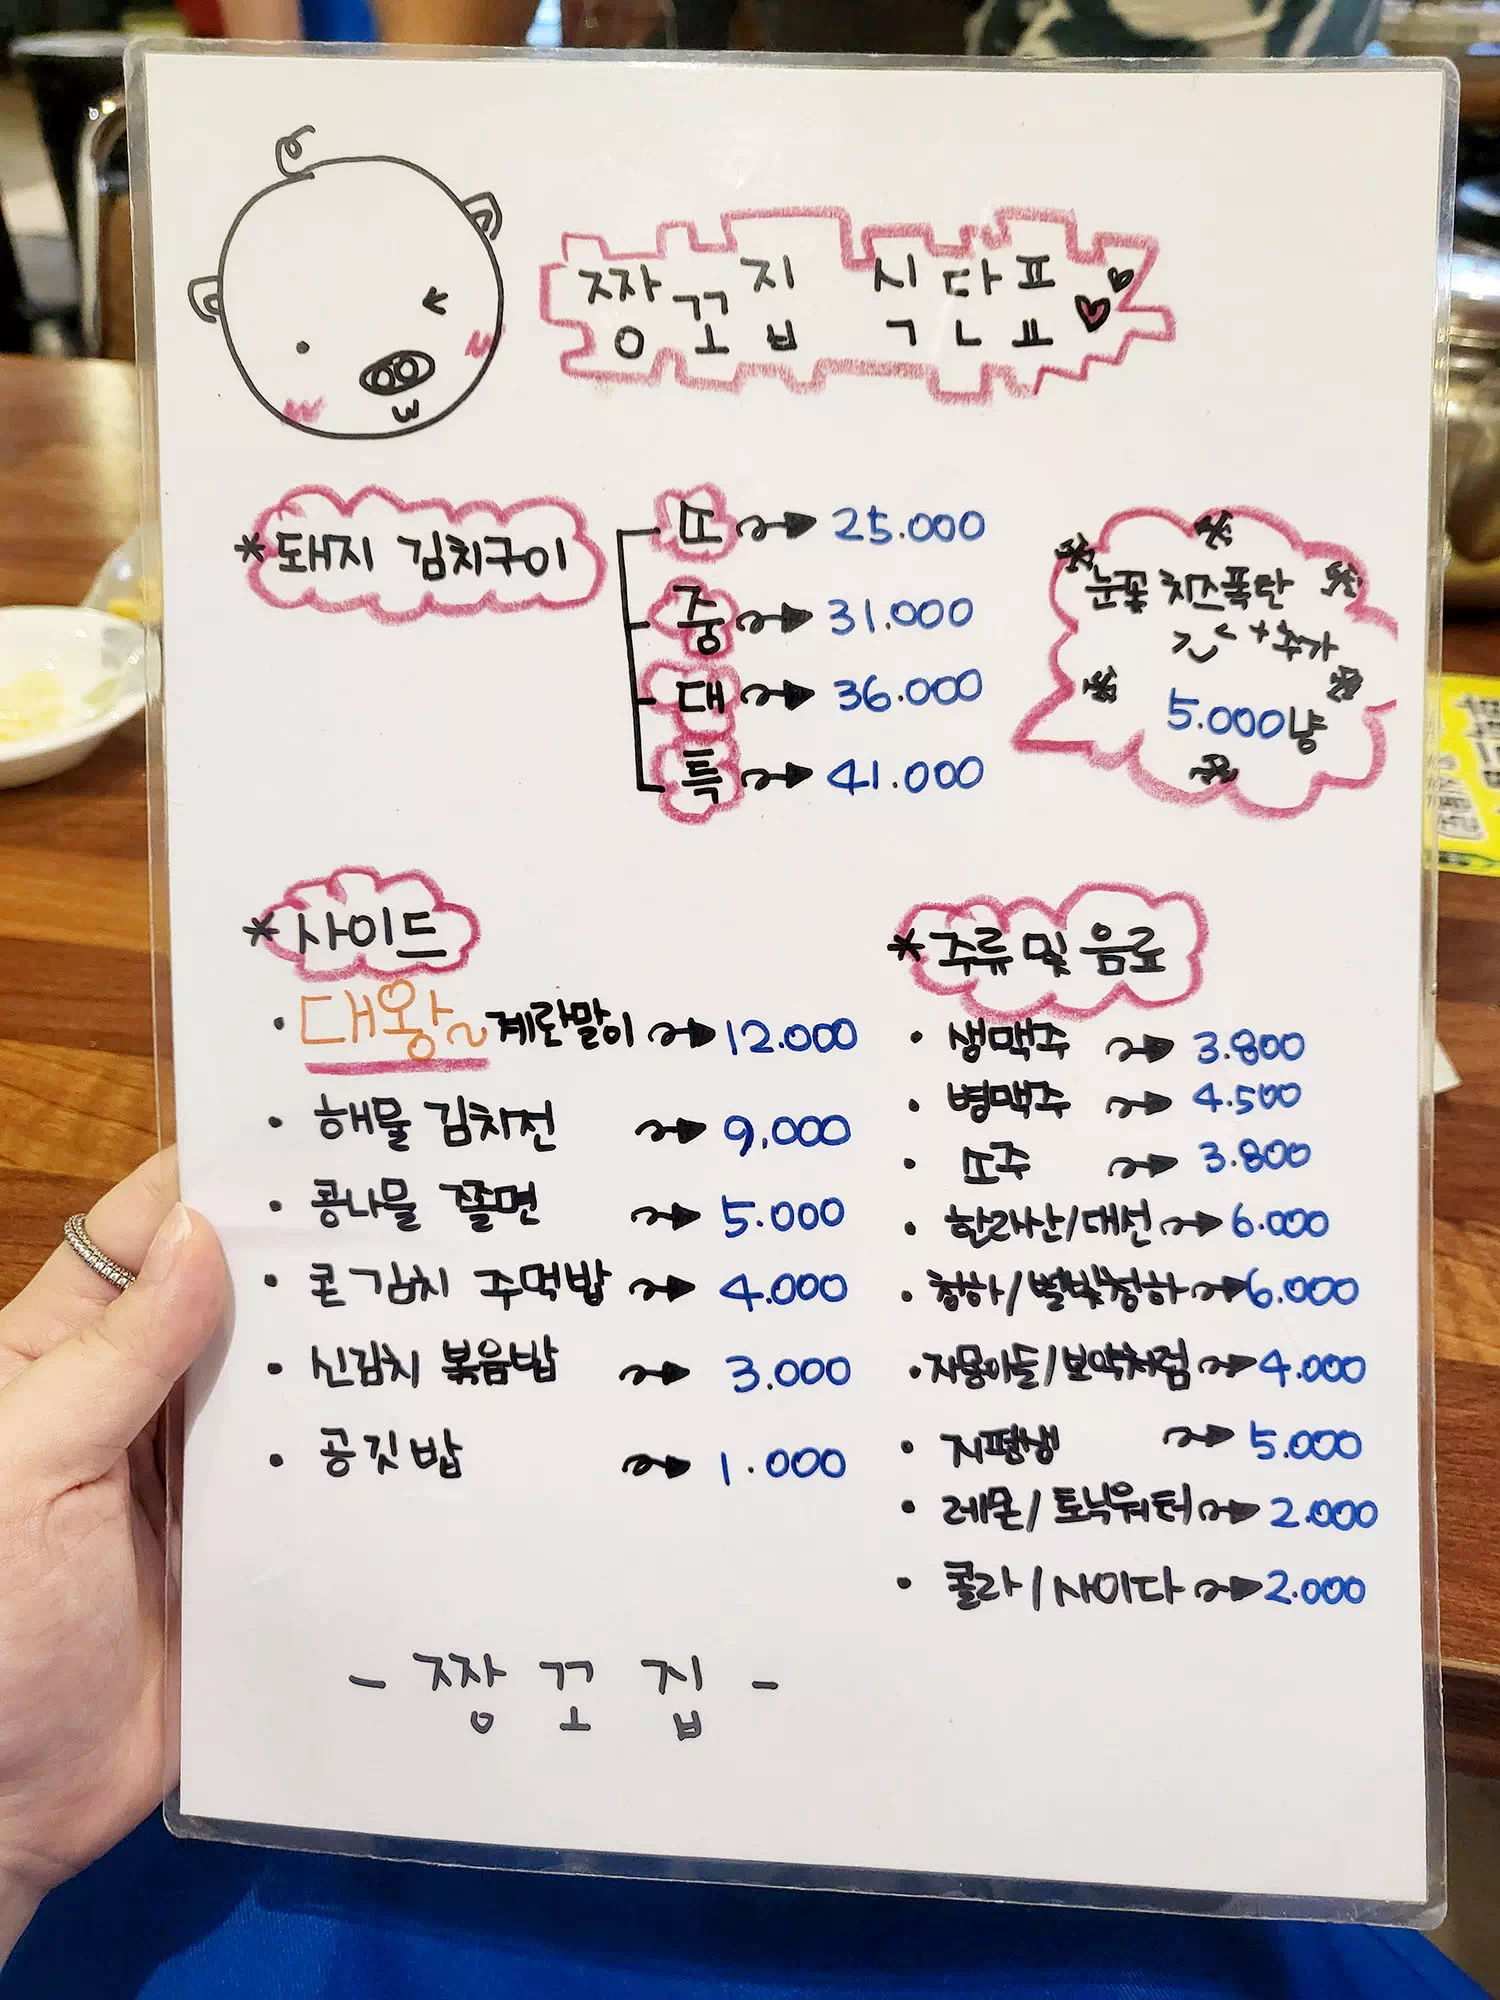 짱꼬집 식단표
* 돼지 김치구이
소 25.000
중 31.000
대 36.000
특 41.000
눈꽃 치즈폭탄
+추가
5.000냥
* 사이드
· 대왕~계란말이 12.000
· 해물 김치전 9.000
· 콩나물 쫄면 5.000
· 콘김치 주먹밥 4.000
· 신김치 볶음밥 3.000
· 공깃밥 1.000
* 주류 및 음료
· 생맥주 3.800
· 병맥주 4.500
· 소주 3.800
· 한라산/대선 6.000
· 청하/별빛청하 6.000
· 자몽이슬/보약처럼 4.000
· 지평생 5.000
· 레몬/토닉워터 2.000
· 콜라/사이다 2.000
- 짱꼬집 -